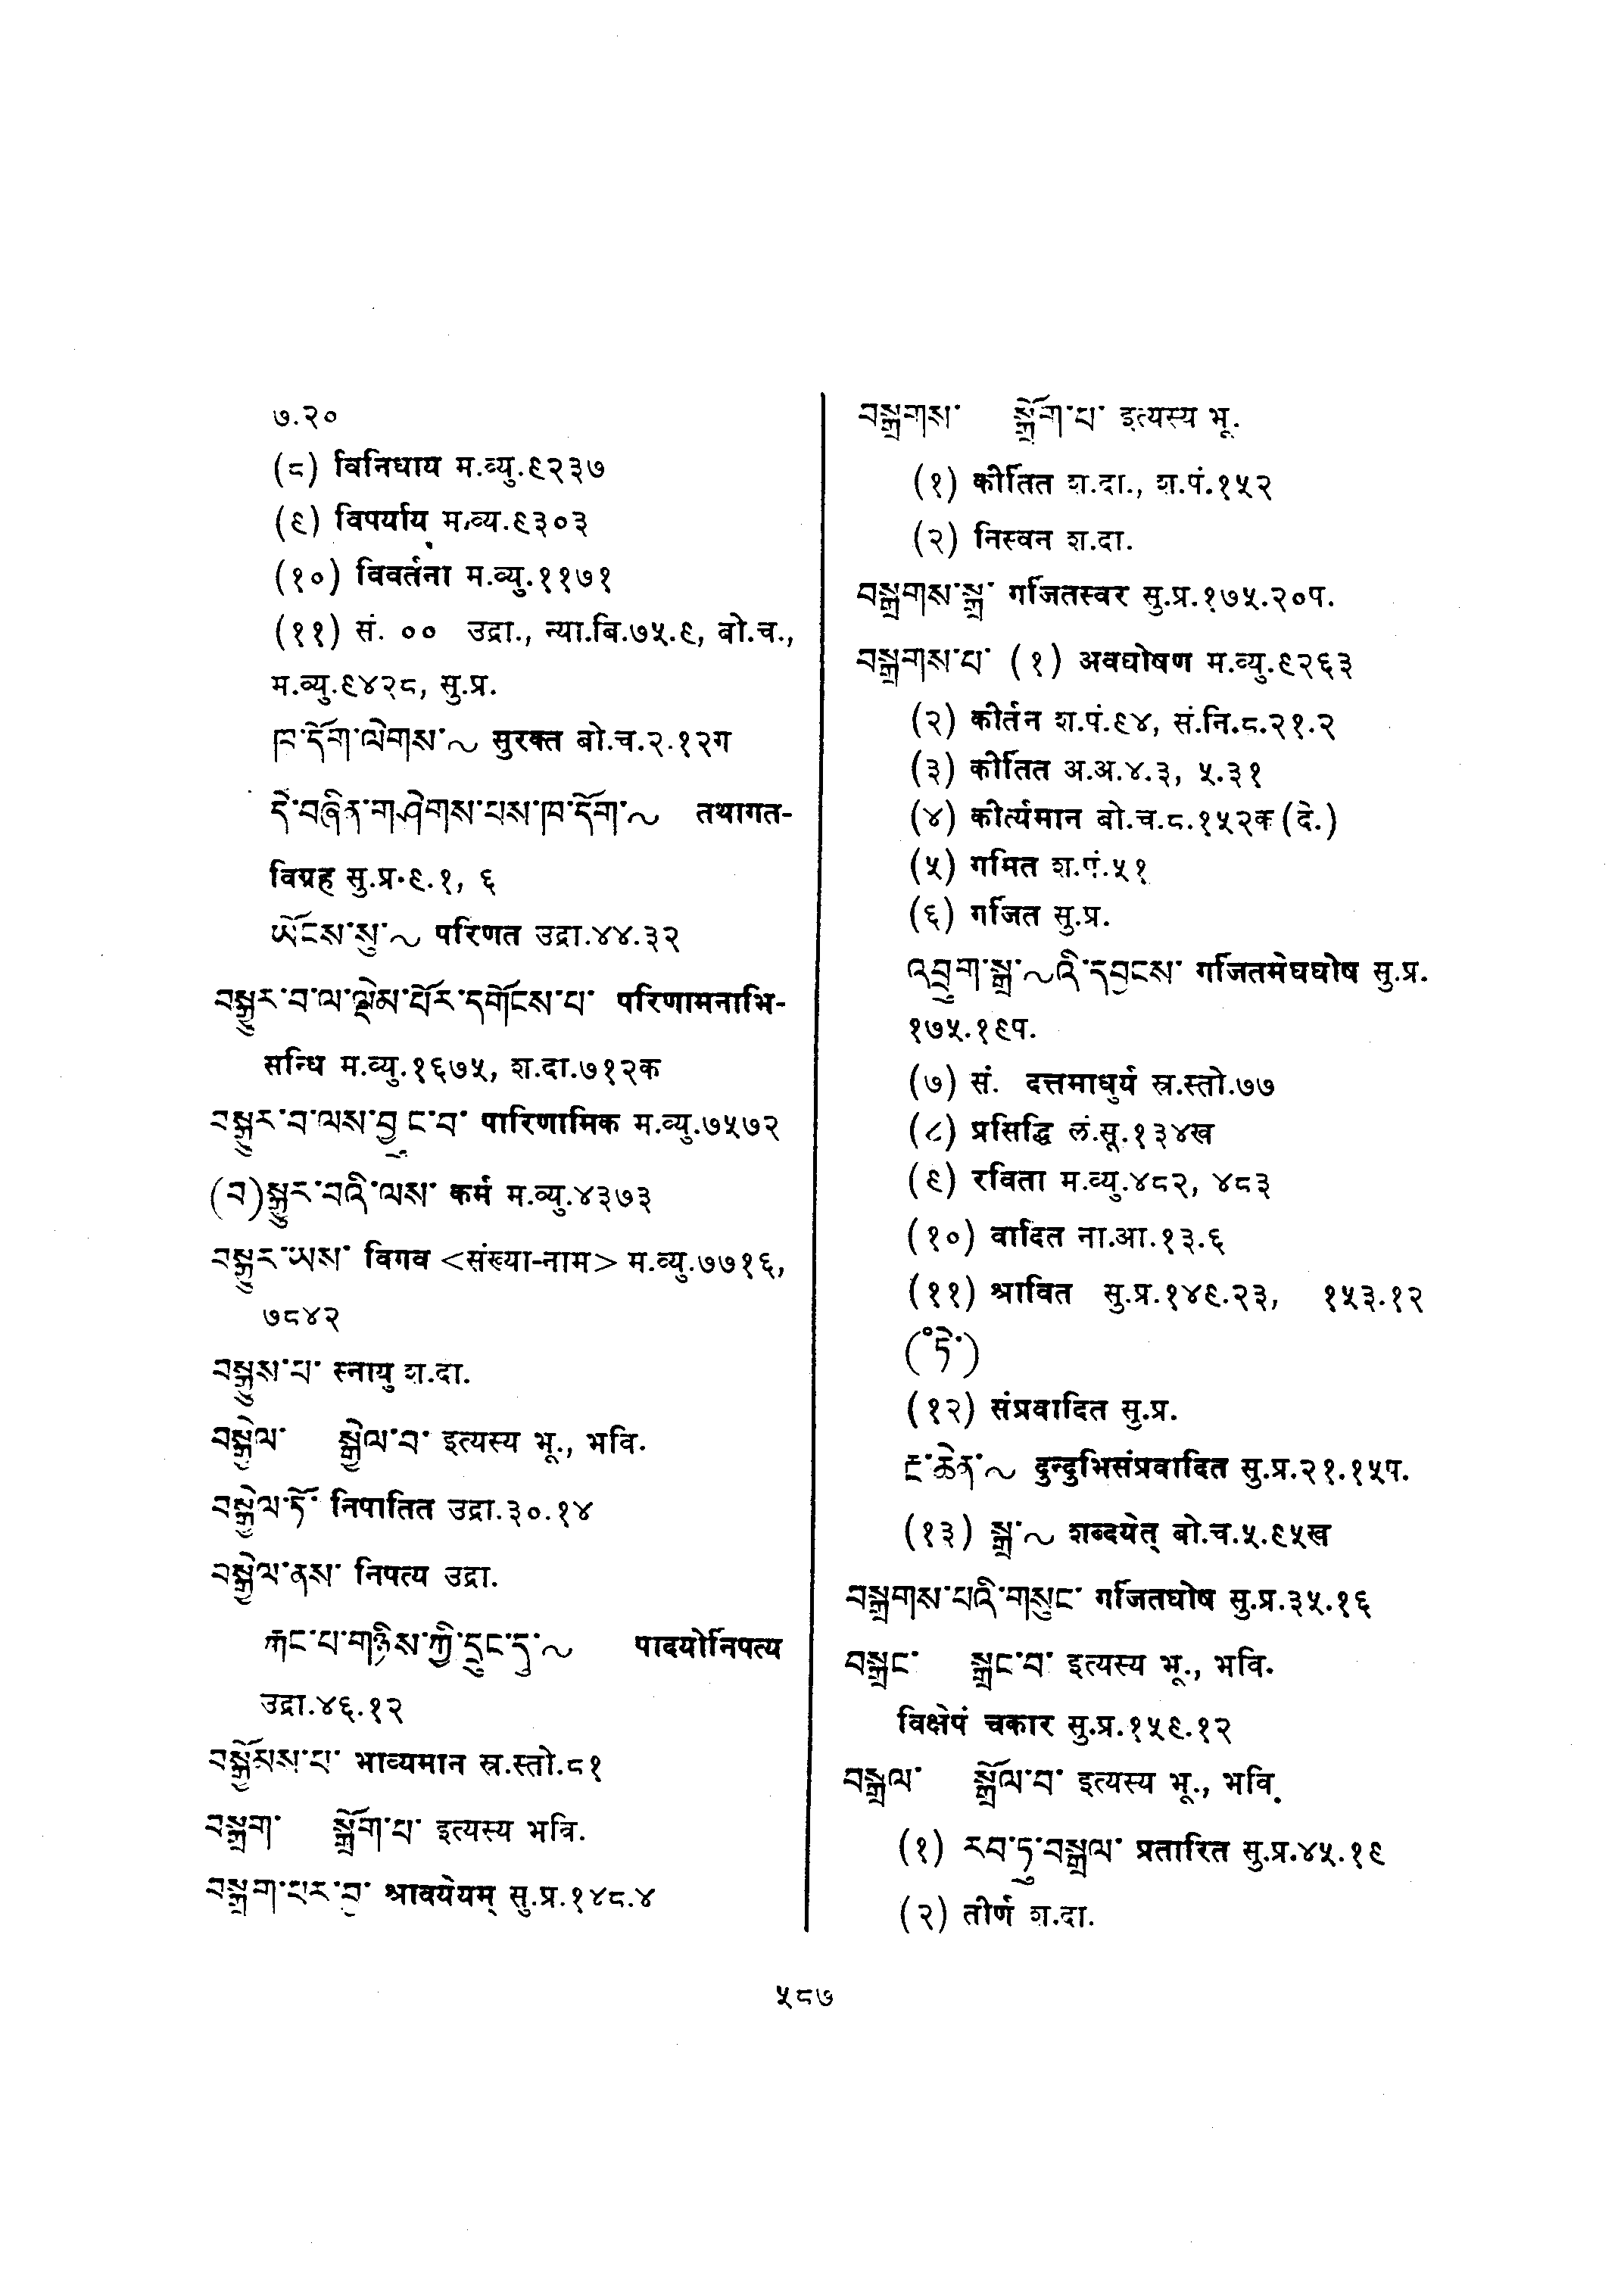 ७.२०
(८) विनिधाय म.व्यु.९२३७
(९) विपर्याय म.व्य.९३०३
(१०) विवर्तना म.व्यु.११७१
(११) सं. ०० उद्रा., न्या.बि.७५.९, बो.च.,
म.व्यु.९४२८, सु.प्र.
ཁ་དོག་ལེགས་~ सुरक्त बो.च.२.१२ग
དེ་བཞིན་གཤེགས་པས་ཁ་དོག་~ तथागत-
विग्रह सु.प्र.९.१, ६
ཡོངས་སུ་~ परिणत उद्रा.४४.३२
བསྒྱུར་བ་ལ་ལྡེམ་པོར་དགོངས་པ་ परिणामनाभि-
सन्धि म.व्यु.१६७५, श.दा.७१२क
བསྒྱུར་བ་ལས་བྱུང་བ་ पारिणामिक म.व्यु.७५७२
(བ)སྒྱུར་བའི་ལས་ कर्म म.व्यु.४३७३
བསྒྱུར་ཡས་ विगव <संख्या-नाम> म.व्यु.७७१६,
७८४२
བསྒྱུས་པ་ स्नायु श.दा.
བསྒྱེལ་ སྒྱེལ་བ་ इत्यस्य भू., भवि.
བསྒྱེལ་ཏོ་ निपातित उद्रा.३०.१४
བསྒྱེལ་ནས་ निपत्य उद्रा.
རྐང་པ་གཉིས་ཀྱི་དྲུང་དུ་~ पादयोर्निपत्य
उद्रा.४६.१२
བསྒྱོམས་པ་ भाव्यमान स्र.स्तो.८१
བསྒྲག་ སྒྲོག་པ་ इत्यस्य भवि.
བསྒྲག་པར་བྱ་ श्रावयेयम् सु.प्र.१४८.४
བསྒྲགས་ སྒྲོག་པ་ इत्यस्य भू.
(१) कीर्तित श.दा., श.पं.१५२
(२) निस्वन श.दा.
བསྒྲགས་སྒྲ་ गर्जितस्वर सु.प्र.१७५.२०प.
བསྒྲགས་པ་ (१) अवघोषण म.व्यु.९२६३
(२) कीर्तन श.पं.९४, सं.नि.८.२१.२
(३) कीर्तित अ.अ.४.३, ५.३१
(४) कीर्त्यमान बो.च.८.१५२क (दे.)
(५) गमित श.पं.५१
(६) गर्जित सु.प्र.
འབྲུག་སྒྲ་~འི་དབྱངས་ गर्जितमेघघोष सु.प्र.
१७५.१९प.
(७) सं. दत्तमाधुर्य स्र.स्तो.७७
(८) प्रसिद्धि लं.सू.१३४ख
(९) रविता म.व्यु.४८२, ४८३
(१०) वादित ना.आ.१३.६
(११) श्रावित सु.प्र.१४९.२३, १५३.१२
(°ཏེ་)
(१२) संप्रवादित सु.प्र.
རྔ་ཆེན་~ दुन्दुभिसंप्रवादित सु.प्र.२१.१५प.
(१३) སྒྲ་~ शब्दयेत् बो.च.५.९५ख
བསྒྲགས་པའི་གསུང་ गर्जितघोष सु.प्र.३५.१६
བསྒྲང་ སྒྲང་བ་ इत्यस्य भू., भवि.
विक्षेपं चकार सु.प्र.१५९.१२
བསྒྲལ་ སྒྲོལ་བ་ इत्यस्य भू., भवि.
(१) རབ་ཏུ་བསྒྲལ་ प्रतारित सु.प्र.४५.१९
(२) तीर्ण श.दा.
५८७